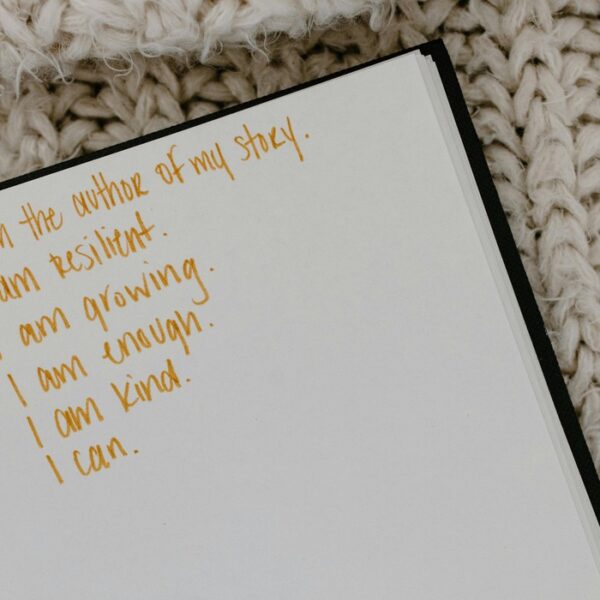 the author of my story.
am resilient.
I am growing.
I am enough.
I am kind.
I can.